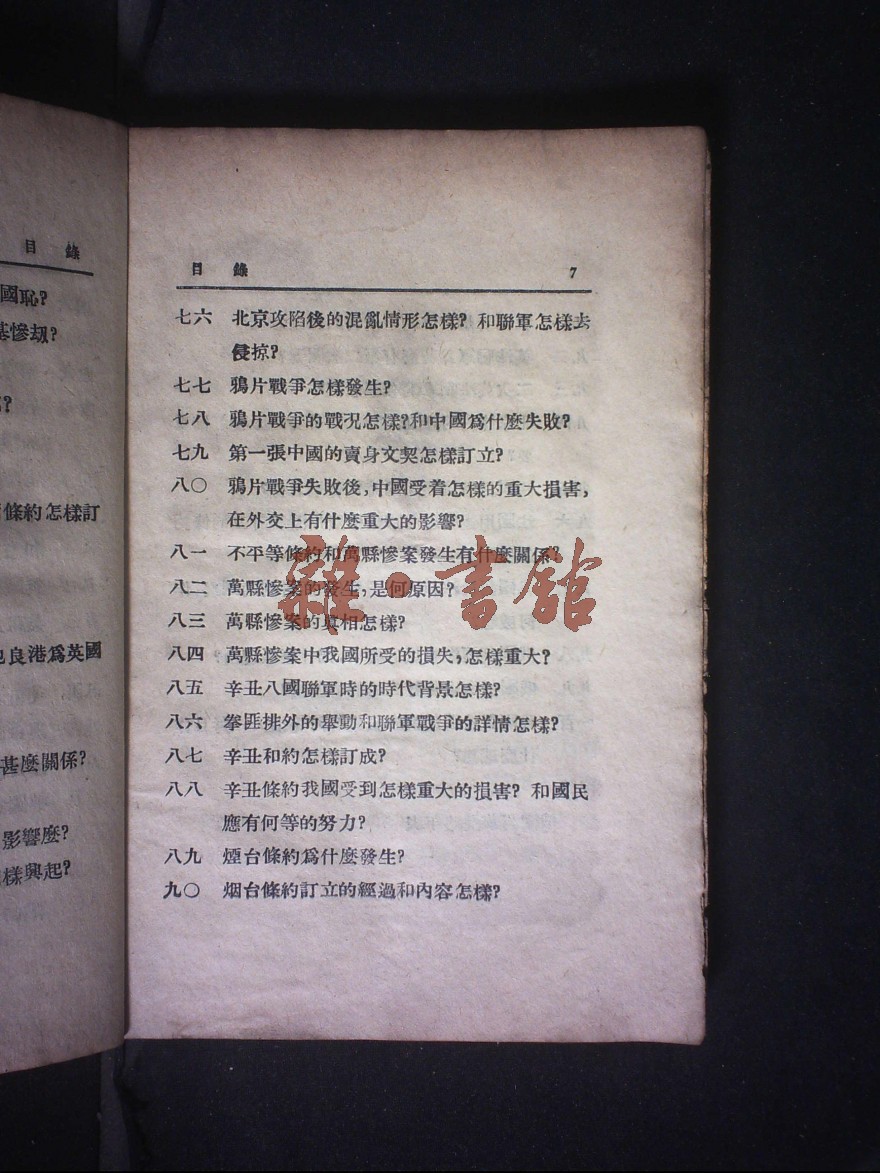 目錄
國恥?
慘劫?
?
條約怎樣訂
良港爲英國
甚麼關係?
影響麼?
樣興起?
目錄 7
七六 北京攻陷後的混亂情形怎樣? 和聯軍怎樣去
侵掠?
七七 鴉片戰爭怎樣發生?
七八 鴉片戰爭的戰況怎樣?和中國爲什麼失敗?
七九 第一張中國的賣身文契怎樣訂立?
八〇 鴉片戰爭失敗後,中國受着怎樣的重大損害,
在外交上有什麼重大的影響?
八一 不平等條約和萬縣慘案發生有什麼關係?
八二 萬縣慘案的發生,是何原因?
八三 萬縣慘案的真相怎樣?
八四 萬縣慘案中我國所受的損失,怎樣重大?
八五 辛丑八國聯軍時的時代背景怎樣?
八六 拳匪排外的舉動和聯軍戰爭的詳情怎樣?
八七 辛丑和約怎樣訂成?
八八 辛丑條約我國受到怎樣重大的損害? 和國民
應有何等的努力?
八九 煙台條約爲什麼發生?
九〇 烟台條約訂立的經過和內容怎樣?
雜·書館